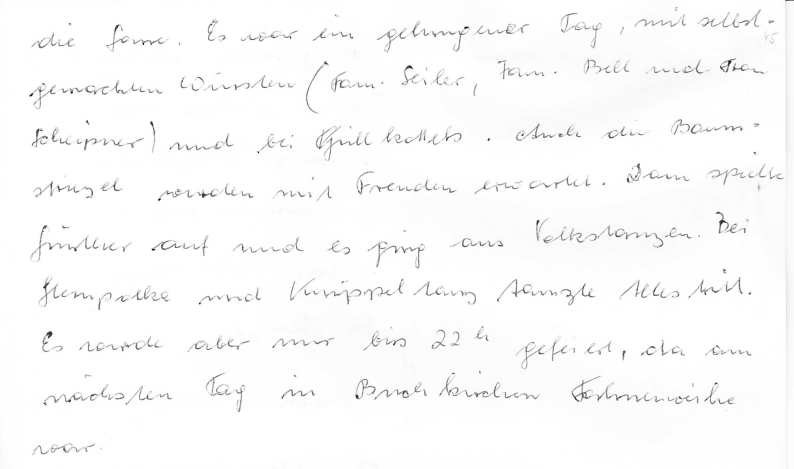 die fame. Es war ein gelungener Tag, mit selbst-
gemachten Würsten (Fam. Seiler, Fam. Bell und Frau
) und bei Grillkotletts. Auch die Baum-
striezel wurden mit Freuden erwartet. Dann spielte
Günther auf und es ging ans Volkstanzen. Bei
Sternpolka und Knüppeltanz tanzte Alles mit.
Es wurde aber nur bis 22 h gefeiert, da am
nächsten Tag in Buchkirchen Fahnenweihe
war.